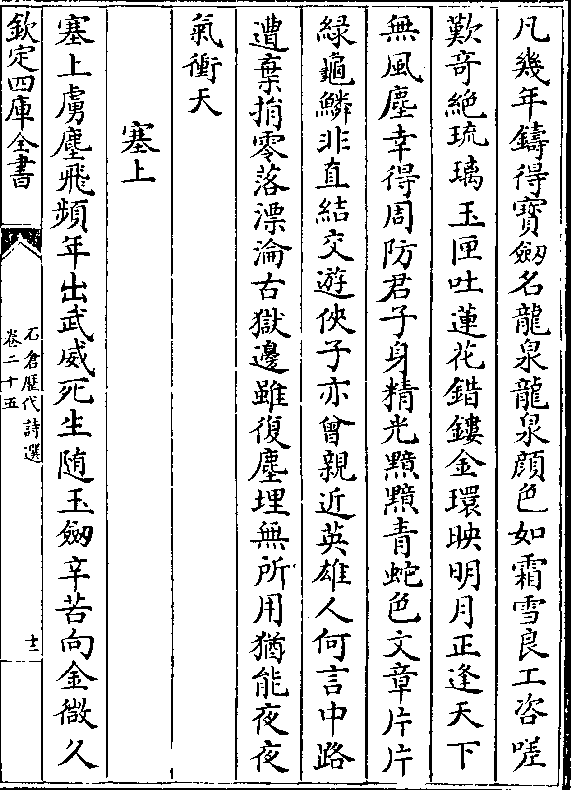 凡幾年鑄得寶劒名龍泉龍泉顔色如霜雪良工咨嗟
歎奇絶琉璃玉匣吐蓮花錯鏤金環映明月正逢天下
無風塵幸得周防君子身精光黯黯青蛇色文章片片
緑龜鱗非直結交遊俠子亦曾親近英雄人何言中路
遭棄捐零落漂淪古獄邊雖復塵埋無所用猶能夜夜
氣衝天
塞上
塞上虜塵飛頻年出武威死生随玉劒辛苦向金微久
欽定四庫全書
石倉歴代詩選
卷二十五
十二